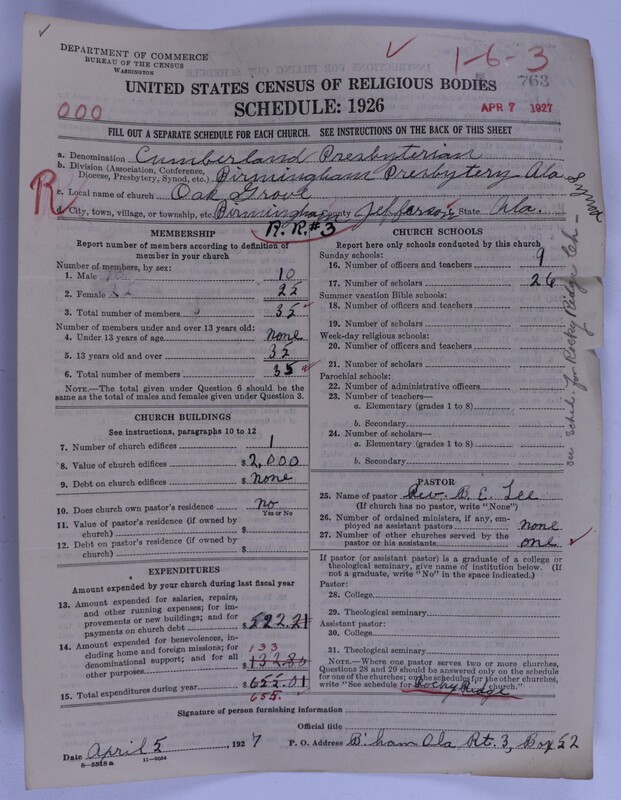 DEPARTMENT OF COMMERCE
BUREAU OF THE CENSUS
WASHINGTON
1-6-3
763
UNITED STATES CENSUS OF RELIGIOUS BODIES
SCHEDULE: 1926
000
APR 7 1927
FILL OUT A SEPARATE SCHEDULE FOR EACH CHURCH. SEE INSTRUCTIONS ON THE BACK OF THIS SHEET
a. Denomination Cumberland Presbyterian
b. Division (Association, Conference, Diocese, Presbytery, Synod, etc.) Birmingham Presbytery Ala Synod
R
c. Local name of church Oak Grove
d. City, town, village, or township, etc. Birmingham County Jefferson State Ala.
R.R.#3
MEMBERSHIP
Report number of members according to definition of
member in your church
Number of members, by sex:
1. Male 10
2. Female 25
3. Total number of members 35
Number of members under and over 13 years old:
4. Under 13 years of age none
5. 13 years old and over 35
6. Total number of members 35
NOTE.—The total given under Question 6 should be
the same as the total of males and females given under Question 3.
CHURCH BUILDINGS
See instructions, paragraphs 10 to 12
7. Number of church edifices 1
8. Value of church edifices $2,000
9. Debt on church edifices $none
10. Does church own pastor's residence? no
Yes or No
11. Value of pastor's residence (if owned by
church) $
12. Debt on pastor's residence (if owned by
church) $
EXPENDITURES
Amount expended by your church during last fiscal year
13. Amount expended for salaries, repairs,
and other running expenses; for im-
provements or new buildings; and for
payments on church debt $522.21
14. Amount expended for benevolences, in-
cluding home and foreign missions; for
denominational support; and for all
other purposes $132.80
133
15. Total expenditures during year $652.01
655.
CHURCH SCHOOLS
Report here only schools conducted by this church
Sunday schools:
16. Number of officers and teachers 9
17. Number of scholars 26
Summer vacation Bible schools:
18. Number of officers and teachers
19. Number of scholars
Week-day religious schools:
20. Number of officers and teachers
21. Number of scholars
Parochial schools:
22. Number of administrative officers
23. Number of teachers—
a. Elementary (grades 1 to 8)
b. Secondary
24. Number of scholars—
a. Elementary (grades 1 to 8)
b. Secondary
see sched. for Rocky Ridge Ch -
PASTOR
25. Name of pastor Rev. B. E. Lee
(If church has no pastor, write "None")
26. Number of ordained ministers, if any, em-
ployed as assistant pastors none
27. Number of other churches served by the
pastor or his assistants one
If pastor (or assistant pastor) is a graduate of a college or
theological seminary, give name of institution below. (If
not a graduate, write "No" in the space indicated.)
Pastor:
28. College
29. Theological seminary
Assistant pastor:
30. College
31. Theological seminary
NOTE.—Where one pastor serves two or more churches,
Questions 28 and 29 should be answered only on the schedule
for one of the churches; on the schedules for the other churches,
write "See schedule for Rocky Ridge church."
Signature of person furnishing information
Official title
Date April 5, 1927 P. O. Address B'ham Ala, Rt. 3, Box 52
8-5518a 11-9064